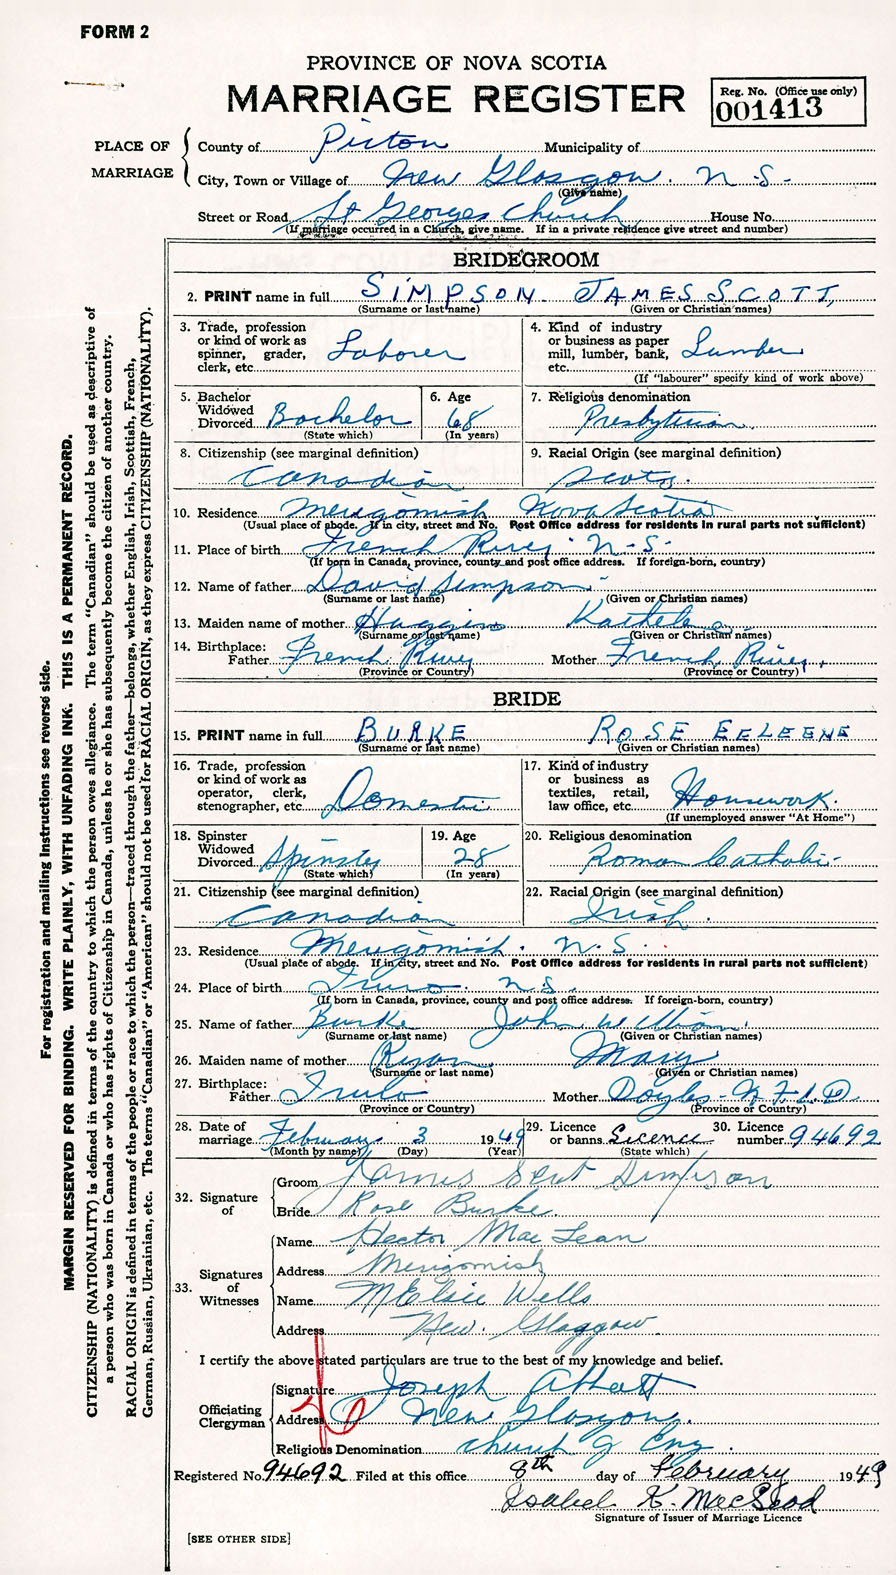 FORM 2
PROVINCE OF NOVA SCOTIA
MARRIAGE REGISTER
Reg. No. (Office use only)
001413
PLACE OF MARRIAGE
County of Pictou Municipality of
City, Town or Village of New Glasgow. N.S.
(Give name)
Street or Road St Georges Church House No.
(If marriage occurred in a Church, give name. If in a private residence give street and number)
BRIDEGROOM
2. PRINT name in full SIMPSON JAMES SCOTT,
(Surname or last name) (Given or Christian names)
3. Trade, profession or kind of work as spinner, grader, clerk, etc. Laborer
4. Kind of industry or business as paper mill, lumber, bank, etc. Lumber
(If "labourer" specify kind of work above)
5. Bachelor Widowed Divorced Bachelor
(State which)
6. Age 68
(In years)
7. Religious denomination
Presbyterian
8. Citizenship (see marginal definition)
Canadian
9. Racial Origin (see marginal definition)
Scots.
10. Residence Merigomish Nova Scotia
(Usual place of abode. If in city, street and No. Post Office address for residents in rural parts not sufficient)
11. Place of birth French River N-S.
(If born in Canada, province, county and post office address. If foreign-born, country)
12. Name of father David Simpson
(Surname or last name) (Given or Christian names)
13. Maiden name of mother Huggins
(Surname or last name) (Given or Christian names)
14. Birthplace:
Father French River Mother French River,
(Province or Country) (Province or Country)
BRIDE
15. PRINT name in full BURKE ROSE EELEENE
(Surname or last name) (Given or Christian names)
16. Trade, profession or kind of work as operator, clerk, stenographer, etc. Domestic
17. Kind of industry or business as textiles, retail, law office, etc. Housework.
(If unemployed answer "At Home")
18. Spinster Widowed Divorced Spinster
(State which)
19. Age 28
(In years)
20. Religious denomination
Roman Catholic
21. Citizenship (see marginal definition)
Canadian
22. Racial Origin (see marginal definition)
Irish.
23. Residence Merigomish. N.S.
(Usual place of abode. If in city, street and No. Post Office address for residents in rural parts not sufficient)
24. Place of birth Truro. N.S.
(If born in Canada, province, county and post office address. If foreign-born, country)
25. Name of father Burke John William.
(Surname or last name) (Given or Christian names)
26. Maiden name of mother Ryan Mary
(Surname or last name) (Given or Christian names)
27. Birthplace:
Father Truro Mother Doyles-N.F.L.D.
(Province or Country) (Province or Country)
28. Date of marriage February 3 1949
(Month by name) (Day) (Year)
29. Licence or banns Licence
(State which)
30. Licence number 94692
32. Signature of
Groom James Scott Simpson
Bride Rose Burke
33. Signatures of Witnesses
Name Hector MacLean
Address Merigomish
Name M Elsie Wells
Address New. Glasgow.
I certify the above stated particulars are true to the best of my knowledge and belief.
Officiating Clergyman
Signature Joseph Abbott
Address New Glasgow.
Religious Denomination Church of Eng.
Registered No. 94692 Filed at this office 8th day of February 1949
Isabel K. MacLeod
Signature of Issuer of Marriage Licence
[SEE OTHER SIDE]
For registration and mailing instructions see reverse side.
MARGIN RESERVED FOR BINDING. WRITE PLAINLY, WITH UNFADING INK. THIS IS A PERMANENT RECORD.
CITIZENSHIP (NATIONALITY) is defined in terms of the country to which the person owes allegiance. The term "Canadian" should be used as descriptive of
a person who was born in Canada or who has rights of Citizenship in Canada, unless he or she has subsequently become the citizen of another country.
RACIAL ORIGIN is defined in terms of the people or race to which the person—traced through the father—belongs, whether English, Irish, Scottish, French,
German, Russian, Ukrainian, etc. The terms "Canadian" or "American" should not be used for RACIAL ORIGIN, as they express CITIZENSHIP (NATIONALITY).